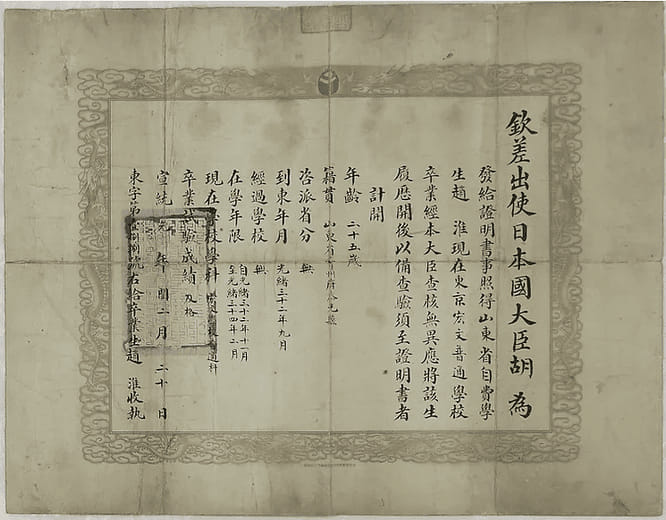 欽差出使日本國大臣胡 為
發給證明書事照得山東省自費學
生趙 淮現在東京宏文普通學校
卒業經本大臣查核無異應將該生
履歷開後以備查驗須至證明書者
計開
年齡 二十五歲
籍貫 山東省青州府
咨派省分 無
到東年月 光緒三十二年九月
經過學校 無
在學年限 自光緒三十二年十一月
至光緒三十四年二月
現在學校學科 普通科
卒業試驗成績 及格
宣統元年閏二月二十日
東字第號右給卒業生趙 淮收執